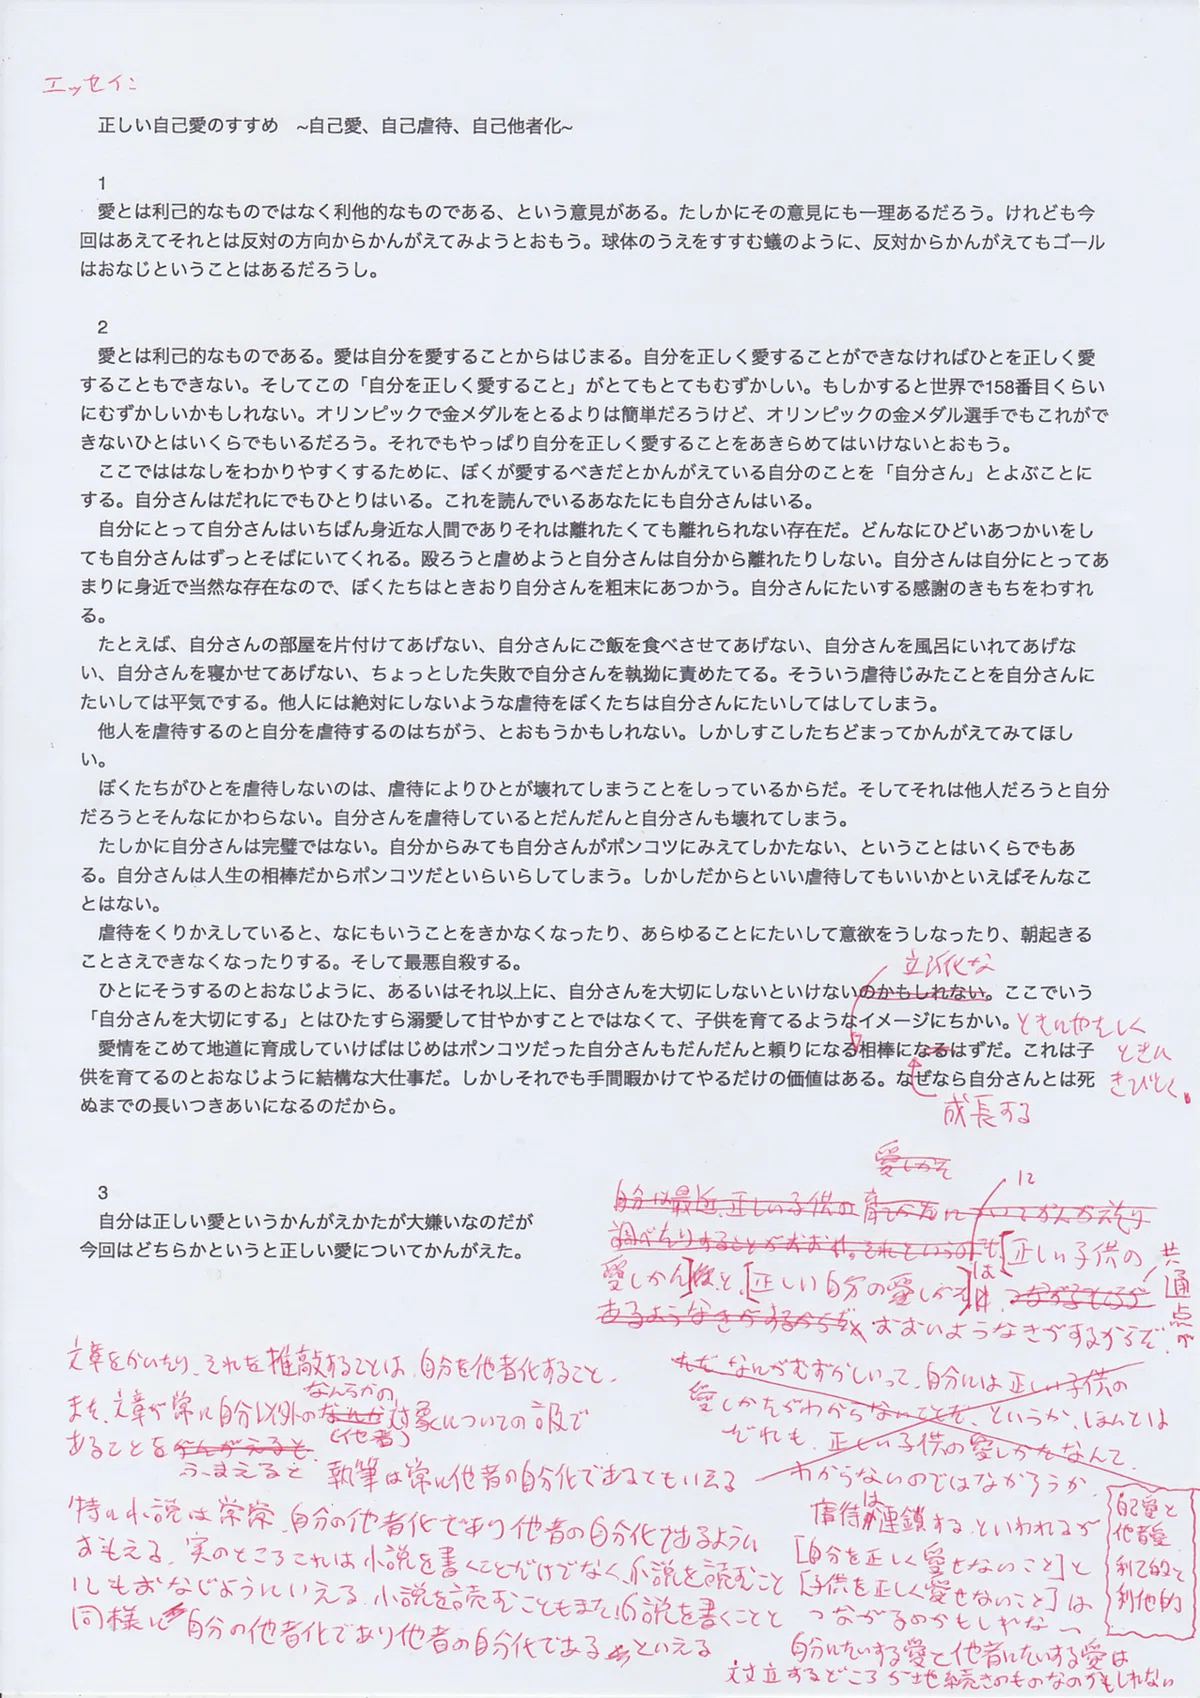 エッセイ:
正しい自己愛のすすめ　~自己愛、自己虐待、自己他者化~
1
愛とは利己的なものではなく利他的なものである、という意見がある。たしかにその意見にも一理あるだろう。けれども今
回はあえてそれとは反対の方向からかんがえてみようとおもう。球体のうえをすすむ蟻のように、反対からかんがえてもゴール
はおなじということはあるだろうし。
2
愛とは利己的なものである。愛は自分を愛することからはじまる。自分を正しく愛することができなければひとを正しく愛
することもできない。そしてこの「自分を正しく愛すること」がとてもとてもむずかしい。もしかすると世界で158番目くらい
にむずかしいかもしれない。オリンピックで金メダルをとるよりは簡単だろうけど、オリンピックの金メダル選手でもこれがで
きないひとはいくらでもいるだろう。それでもやっぱり自分を正しく愛することをあきらめてはいけないとおもう。
ここでははなしをわかりやすくするために、ぼくが愛するべきだとかんがえている自分のことを「自分さん」とよぶことに
する。自分さんはだれにでもひとりはいる。これを読んでいるあなたにも自分さんはいる。
自分にとって自分さんはいちばん身近な人間でありそれは離れたくても離れられない存在だ。どんなにひどいあつかいをし
ても自分さんはずっとそばにいてくれる。殴ろうと虐めようと自分さんは自分から離れたりしない。自分さんは自分にとってあ
まりに身近で当然な存在なので、ぼくたちはときおり自分さんを粗末にあつかう。自分さんにたいする感謝のきもちをわすれ
る。
たとえば、自分さんの部屋を片付けてあげない、自分さんにご飯を食べさせてあげない、自分さんを風呂にいれてあげな
い、自分さんを寝かせてあげない、ちょっとした失敗で自分さんを執拗に責めたてる。そういう虐待じみたことを自分さんに
たいしては平気でする。他人には絶対にしないような虐待をぼくたちは自分さんにたいしてはしてしまう。
他人を虐待するのと自分を虐待するのはちがう、とおもうかもしれない。しかしすこしたちどまってかんがえてみてほし
い。
ぼくたちがひとを虐待しないのは、虐待によりひとが壊れてしまうことをしっているからだ。そしてそれは他人だろうと自分
だろうとそんなにかわらない。自分さんを虐待しているとだんだんと自分さんも壊れてしまう。
たしかに自分さんは完璧ではない。自分からみても自分さんがポンコツにみえてしかたない、ということはいくらでもあ
る。自分さんは人生の相棒だからポンコツだといらいらしてしまう。しかしだからといい虐待してもいいかといえばそんなこ
とはない。
虐待をくりかえしていると、なにもいうことをきかなくなったり、あらゆることにたいして意欲をうしなったり、朝起きる
ことさえできなくなったりする。そして最悪自殺する。
立派な
ひとにそうするのとおなじように、あるいはそれ以上に、自分さんを大切にしないといけないのかもしれない。ここでいう
「自分さんを大切にする」とはひたすら溺愛して甘やかすことではなくて、子供を育てるようなイメージにちかい。
ときにやさしく
ときに
きびしく。
愛情をこめて地道に育成していけばはじめはポンコツだった自分さんもだんだんと頼りになる相棒になるはずだ。これは子
供を育てるのとおなじように結構な大仕事だ。しかしそれでも手間暇かけてやるだけの価値はある。なぜなら自分さんとは死
ぬまでの長いつきあいになるのだから。
成長する
3
自分は正しい愛というかんがえかたが大嫌いなのだが
今回はどちらかというと正しい愛についてかんがえた。
愛しかた
に
自分は最近、正しい子供の育てかたについてかんがえたり
調べたりすることがおおい。それというのも[正しい子供の
愛しかた]と、[正しい自分の愛しかた]には、つながるものが
共通点が
あるようなきがするからだ おおいようなきがするからだ。
ただなんがむずかしいって、自分には正しい子供の
愛しかたがわからないことだ、というか、ほんとは
だれも、正しい子供の愛しかたなんて、
わからないのではなかろうか。
虐待は連鎖する、といわれるが
[自分を正しく愛せないこと]と
[子供を正しく愛せないこと]は
つながるのかもしれない
自己愛と
他者愛
利己的と
利他的
自分にたいする愛と他者にたいする愛は
対立するどころか地続きのものなのかもしれない
文章をかいたり、それを推敲することは、自分を他者化すること。
また、文章が常に自分以外のなんらかの対象(他者)についての記述で
あることをかんがえると、
ふまえると 執筆は常に他者の自分化であるともいえる
特に小説は常に、自分の他者化であり他者の自分化であるように
おもえる。実のところこれは小説を書くことだけでなく、小説を読むこと
にもおなじようにいえる。小説を読むこともまた小説を書くことと
同様に自分の他者化であり他者の自分化であるといえる